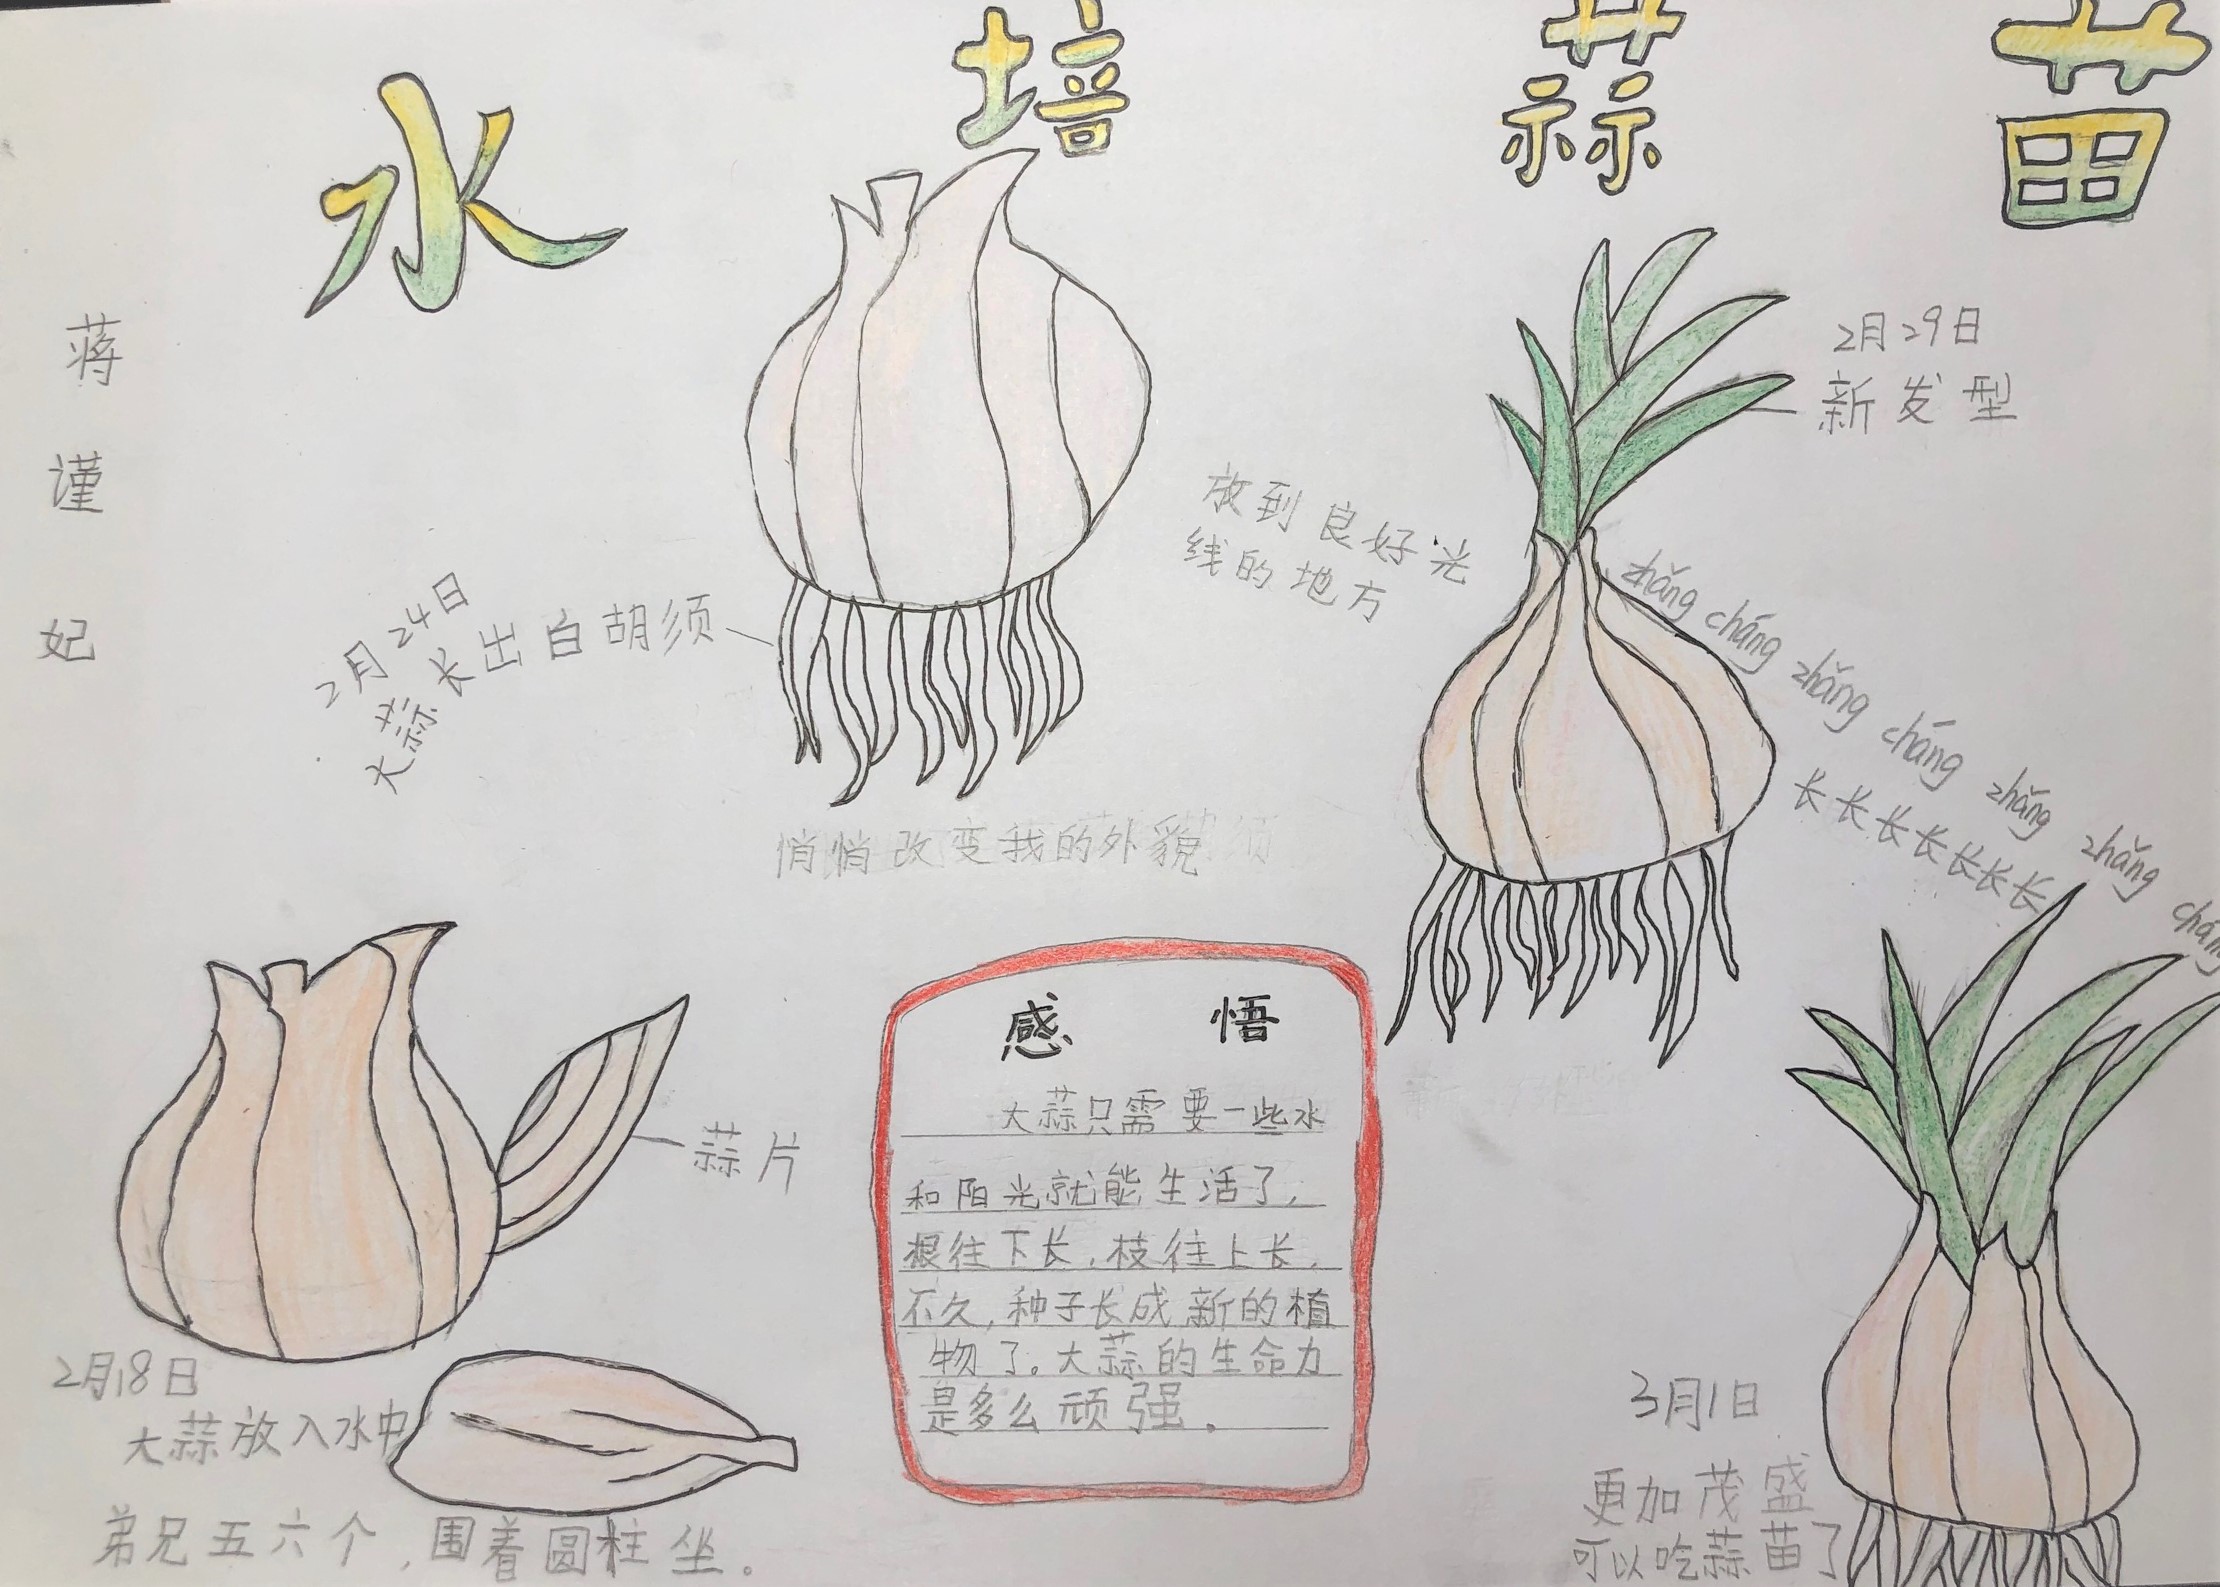 水培蒜苗
蒋谨妃
2月24日
大蒜长出白胡须
悄悄改变我的外貌
放到良好光
线的地方
2月29日
新发型
zhǎng cháng zhǎng cháng zhǎng zhǎng cháng
长长长长长长长
蒜片
2月18日
大蒜放入水中
弟兄五六个,围着圆柱坐。
感悟
大蒜只需要一些水
和阳光就能生活了,
根往下长,枝往上长,
不久,种子长成新的植
物了。大蒜的生命力
是多么顽强。
3月1日
更加茂盛
可以吃蒜苗了